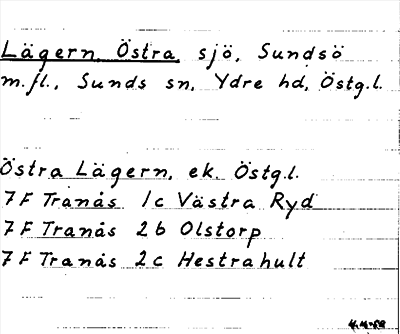 Lägern, Östra, sjö, Sundsö
m.fl., Sunds sn, Ydre hd, Östg.l.
Östra Lägern, ek. Östg.l.
7 F Tranås 1c Västra Ryd
7 F Tranås 2b Olstorp
7 F Tranås 2c Hestrahult